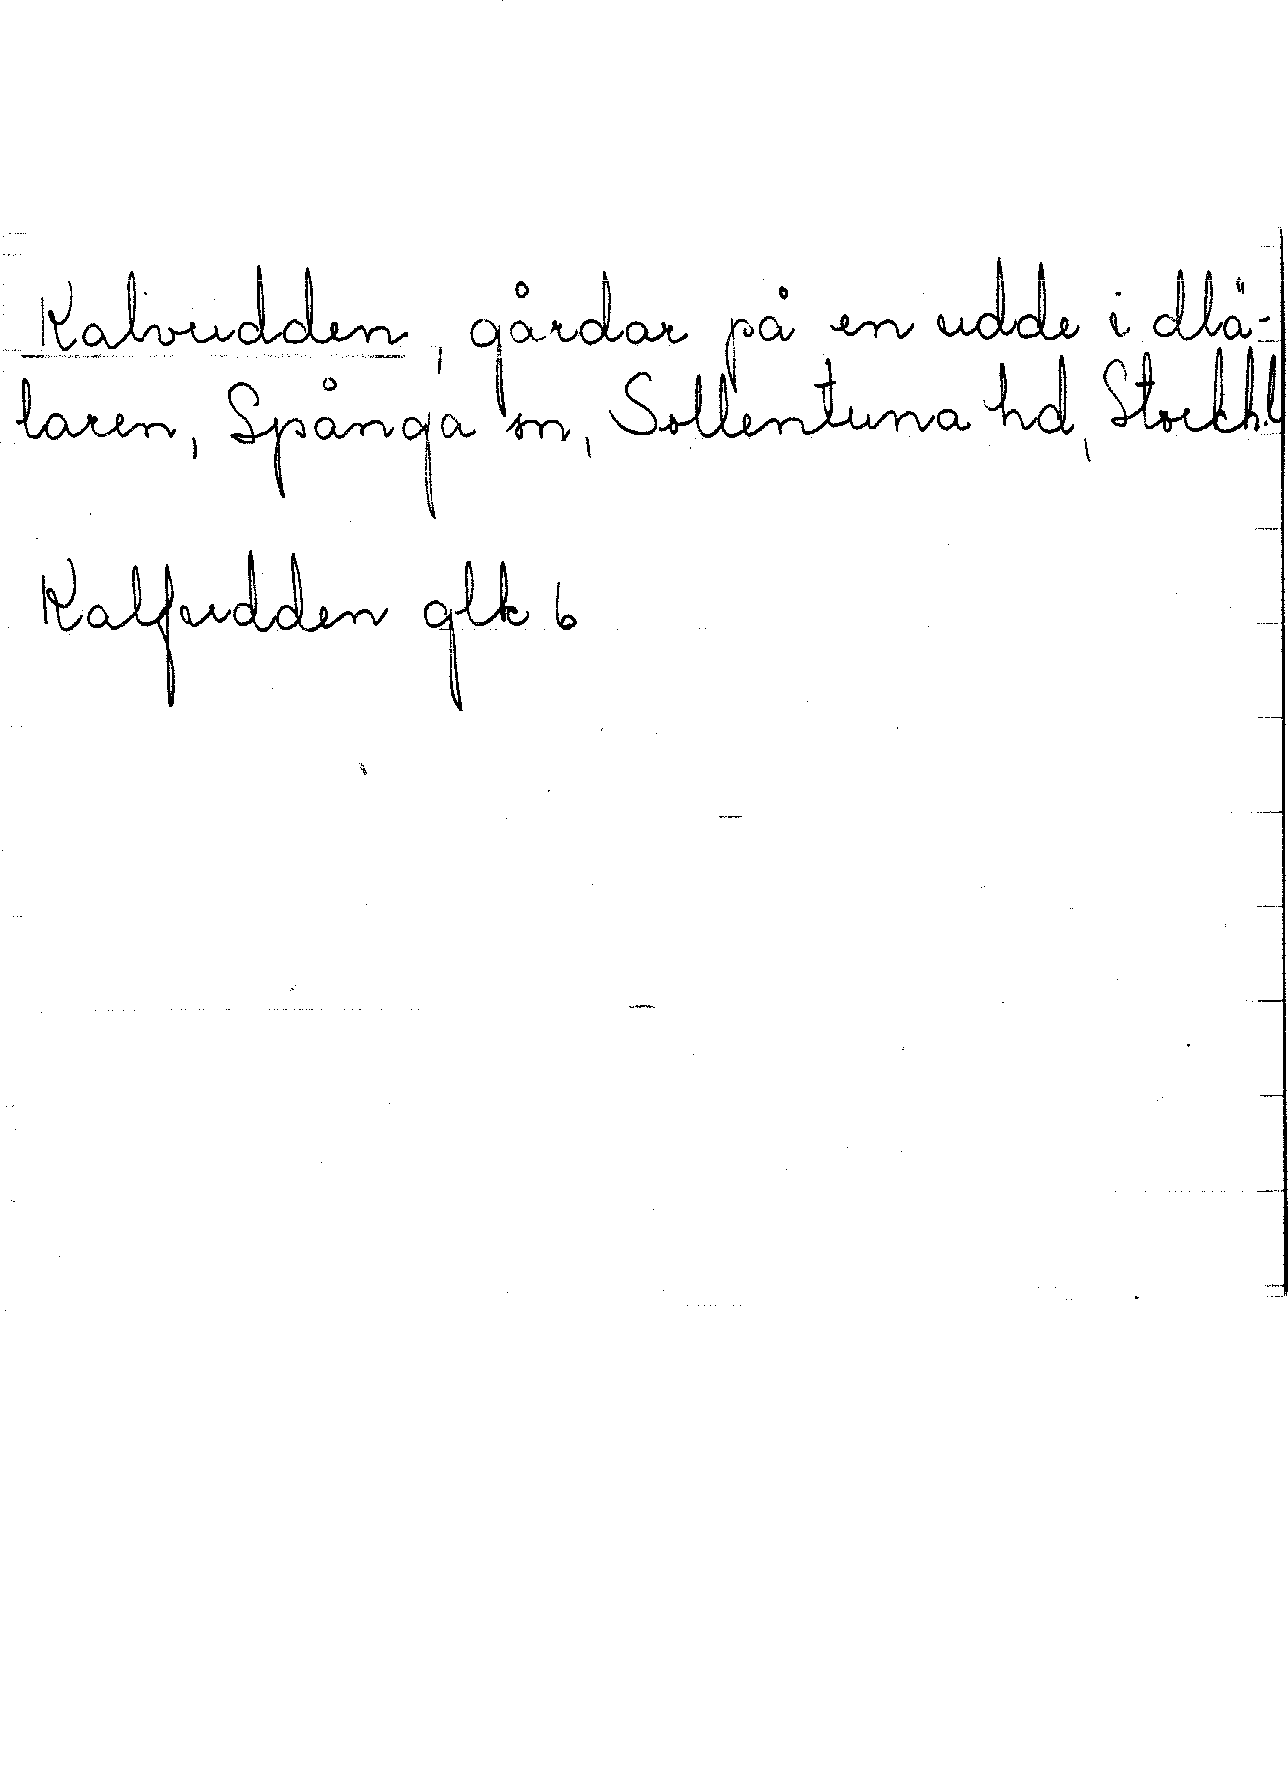 Kalvudden, gårdar på en udde i Mä-
laren, Spånga sn, Sollentuna hd, Stockh.l
Kalfudden glk 6